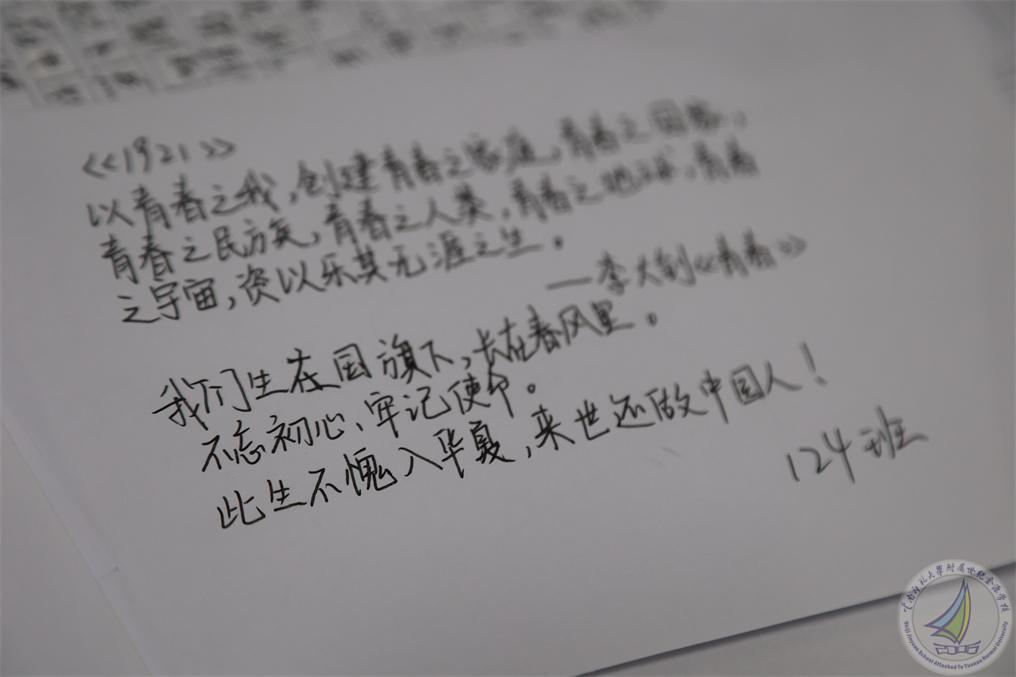 <<1921>>
以青春之我,创建青春之家庭,青春之国家,
青春之民族,青春之人类,青春之地球,青春
之宇宙,资以乐其无涯之生。
—李大钊《青春》
我们生在国旗下,长在春风里。
不忘初心,牢记使命。
此生不愧入华夏,来世还做中国人!
124班
云南师范大學附属世纪金源学校
Shiji Jinyuan School Attached To Yunnan Normal University